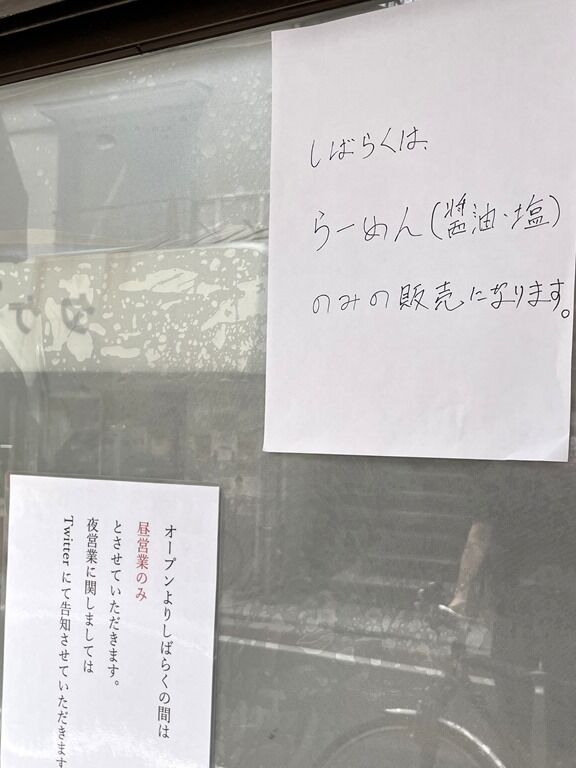 しばらくは、
らーめん(醤油・塩)
のみの販売になります。
オープンよりしばらくの間は
昼営業のみ
とさせていただきます。
夜営業に関しましては
Twitterにて告知させていただきます